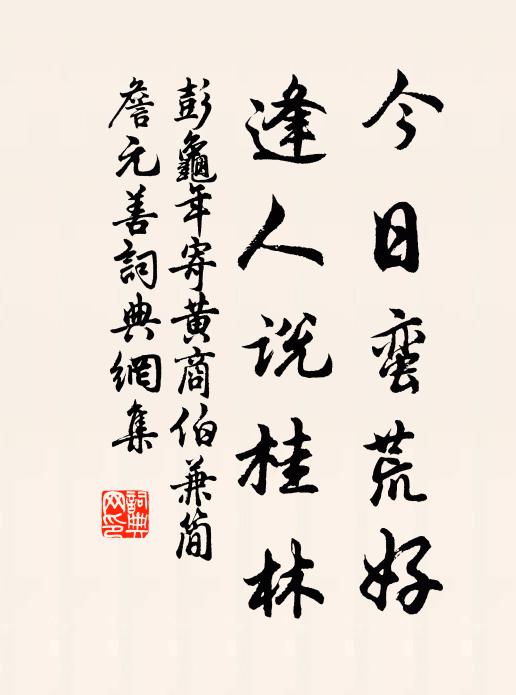 今日蛮荒好
逢人说桂林
彭龜年寄黃商伯兼简
詹元善詞典網集
詞典网印